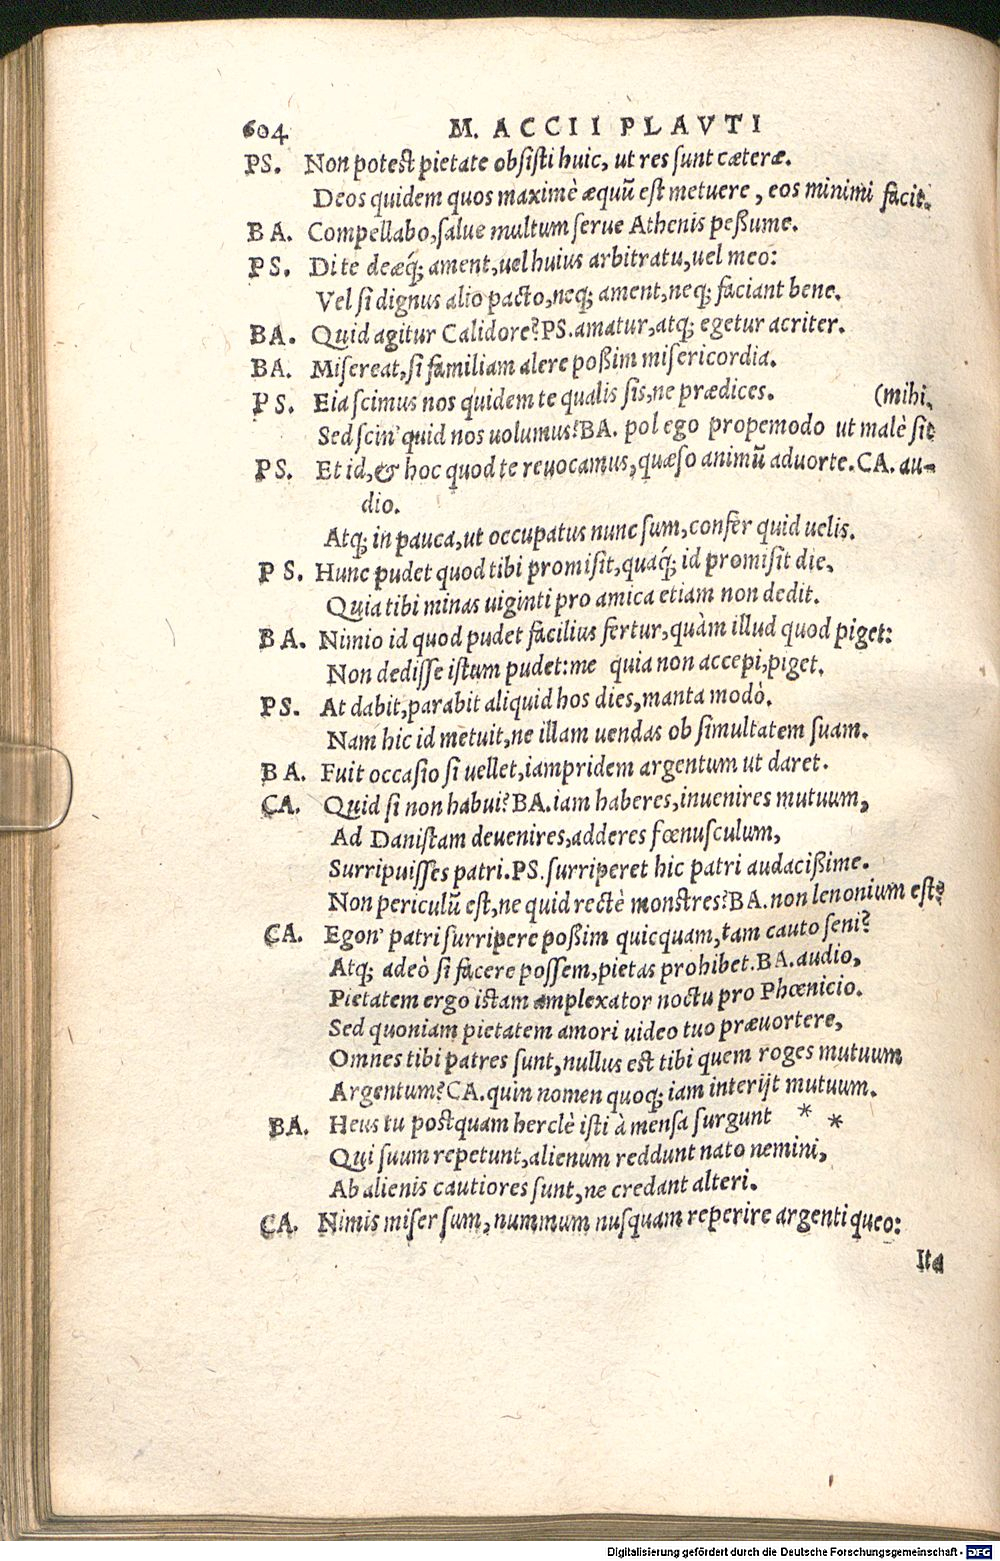 604 M. ACCII PLAVTI
PS. Non potest pietate obsisti huic, ut res sunt cæteræ.
Deos quidem quos maximè æquũ est metuere, eos minimi facit.
BA. Compellabo, salue multum serue Athenis peßume.
PS. Di te deæq́; ament, uel huius arbitratu, uel meo:
Vel si dignus alio pacto, neq; ament, neq; faciant bene.
BA. Quid agitur Calidore? PS. amatur, atq; egetur acriter.
BA. Misereat, si familiam alere poßim misericordia.
PS. Eia scimus nos quidem te qualis sis, ne prædices. (mihi.
Sed scin' quid nos uolumus? BA. pol ego propemodo ut malè sit
PS. Et id, & hoc quod te reuocamus, quæso animũ aduorte. CA. au-
dio.
Atq; in pauca, ut occupatus nunc sum, confer quid uelis.
PS. Hunc pudet quod tibi promisit, quaq́; id promisit die,
Quia tibi minas uiginti pro amica etiam non dedit.
BA. Nimio id quod pudet facilius fertur, quàm illud quod piget:
Non dedisse istum pudet: me quia non accepi, piget.
PS. At dabit, parabit aliquid hos dies, manta modò.
Nam hic id metuit, ne illam uendas ob simultatem suam.
BA. Fuit occasio si uellet, iampridem argentum ut daret.
CA. Quid si non habui? BA. iam haberes, inuenires mutuum,
Ad Danistam deuenires, adderes fœnusculum,
Surripuisses patri. PS. surriperet hic patri audacißime.
Non periculũ est, ne quid rectè monstres? BA. non lenonium est?
CA. Egon' patri surripere poßim quicquam, tam cauto seni?
Atq; adeò si facere possem, pietas prohibet. BA. audio,
Pietatem ergo istam amplexator noctu pro Phœnicio.
Sed quoniam pietatem amori uideo tuo præuortere,
Omnes tibi patres sunt, nullus est tibi quem roges mutuum
Argentum? CA. quin nomen quoq; iam interijt mutuum.
BA. Heus tu postquam herclè isti à mensa surgunt * *
Qui suum repetunt, alienum reddunt nato nemini,
Ab alienis cautiores sunt, ne credant alteri.
CA. Nimis miser sum, nummum nusquam reperire argenti queo:
Ita
Digitalisierung gefördert durch die Deutsche Forschungsgemeinschaft - DFG